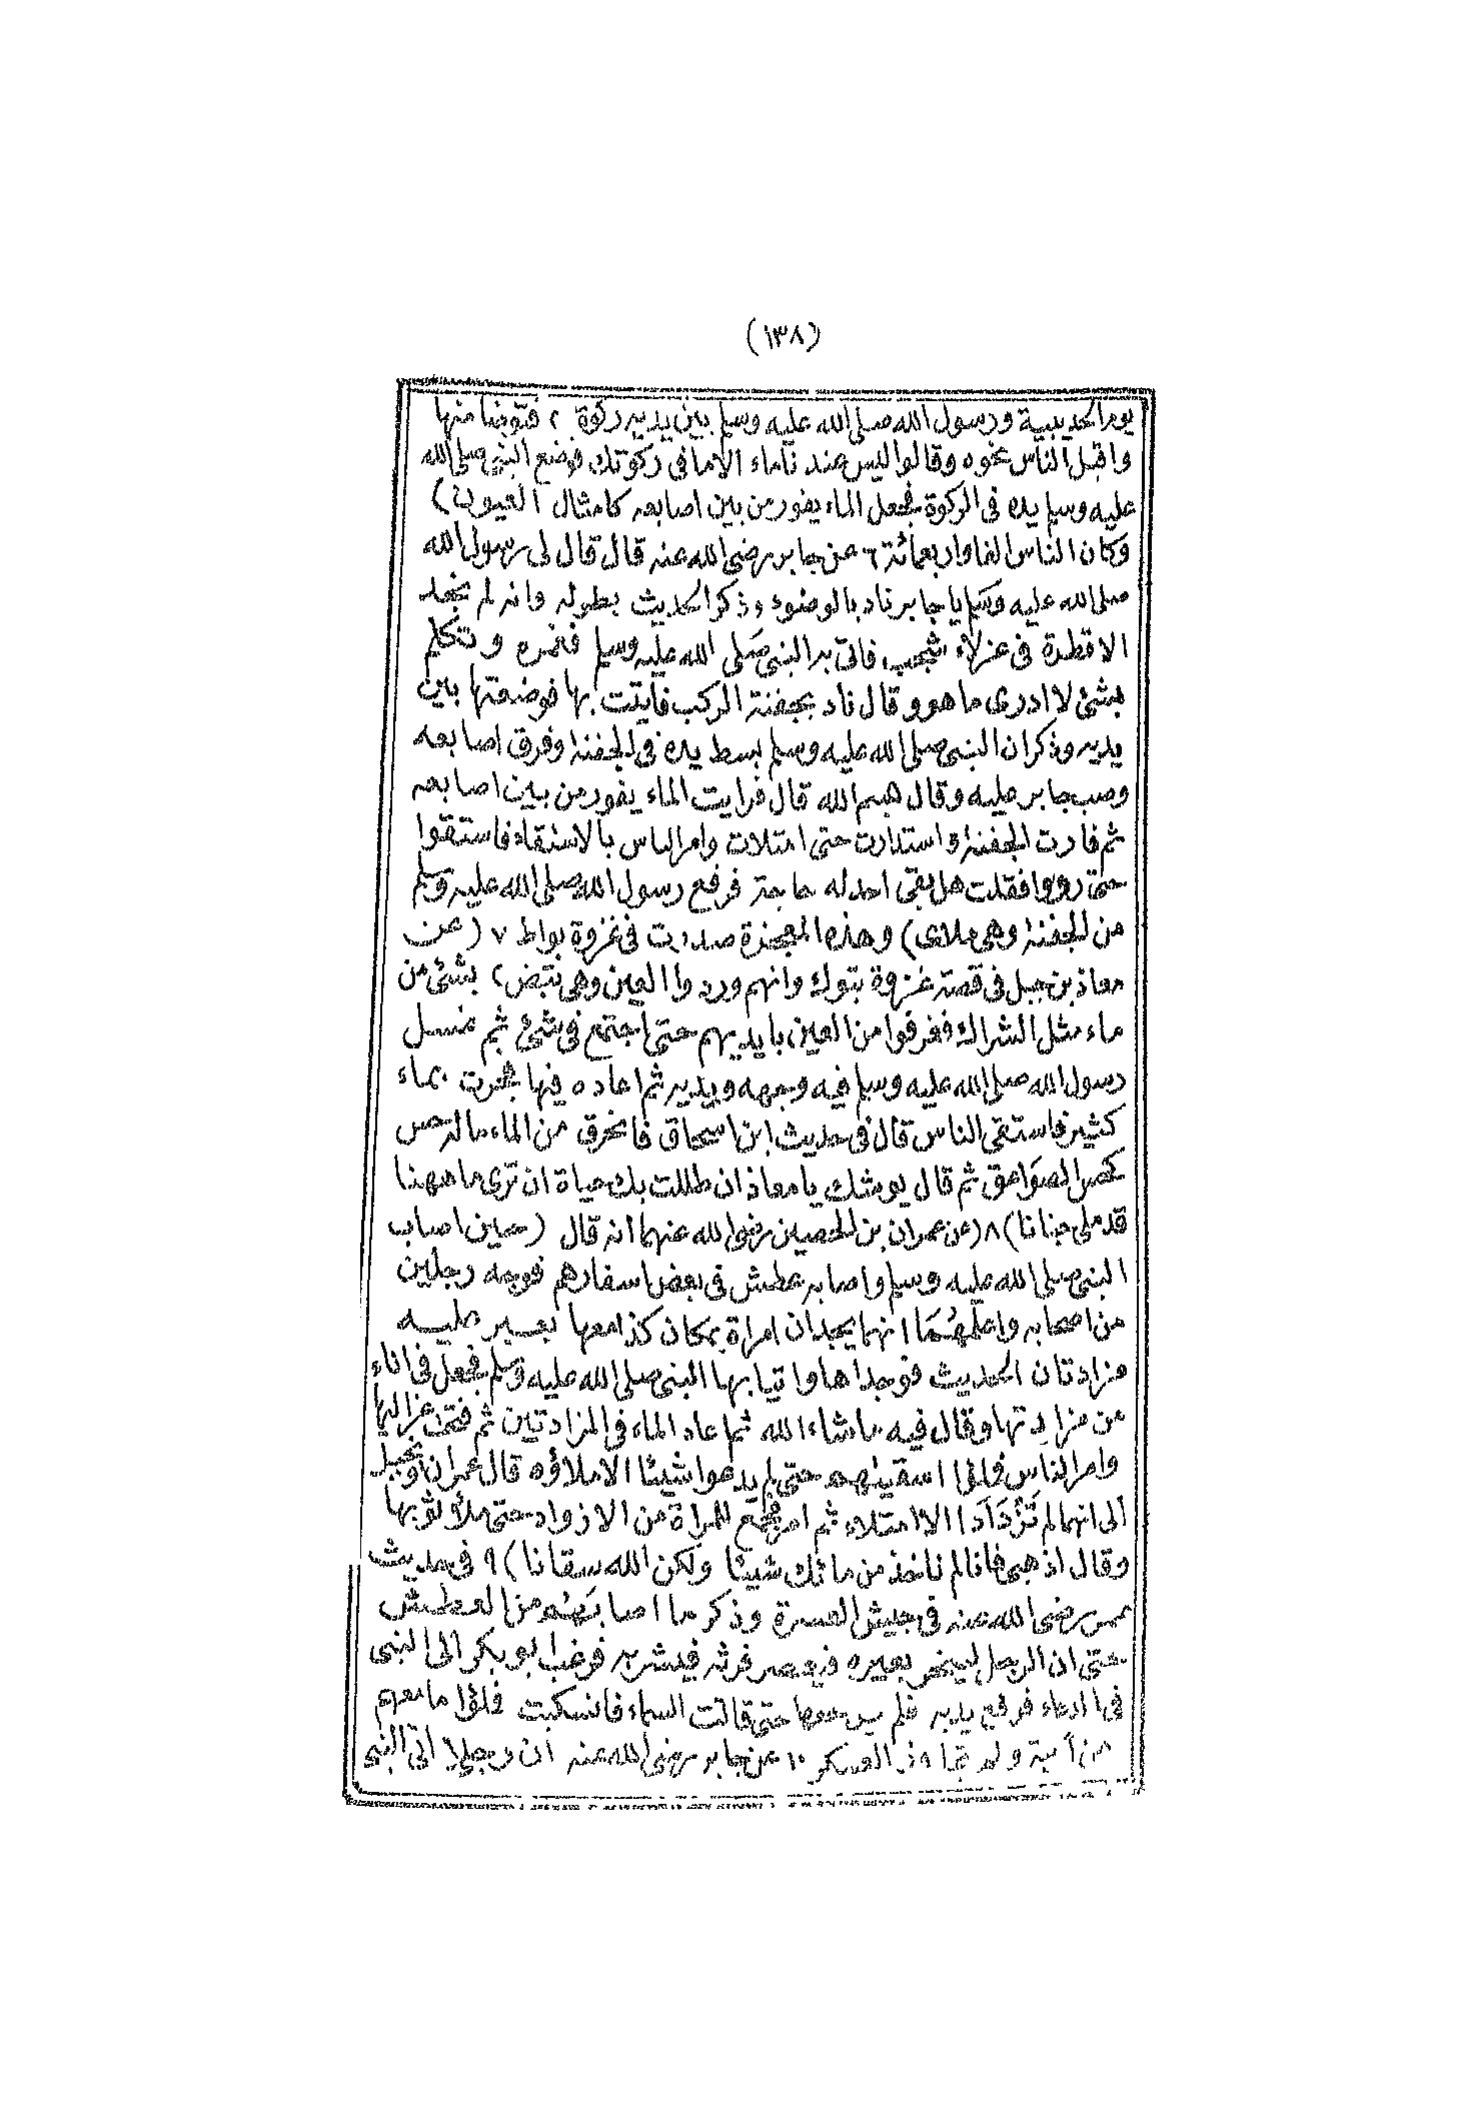 (١٣٨)
يوم الحديبية ورسول الله صلى الله عليه وسلم بين يديه ركوة ، فتوضا منها
واقبل الناس نحوه وقالوا ليس عند ناماء الا ما فى ركوتك فوضع النبى صلى الله
عليه وسلم يده فى الركوة فجعل الماء يفور من بين اصابعه كامثال العيون )
وكان الناس الفا واربعمائة ٦ عن جابر رضى الله عنه قال قال لى رسول الله
صلى الله عليه وسلم يا جابر ناد بالوضوء وذكر الحديث بطوله وانه لم نجد
الا قطرة فى عزلاء شجب فاتى به النبى صلى الله عليه وسلم فغمزه وتكلم
بشئ لا ادرى ما هو وقال ناد بجفنة الركب فايتت بها فوضعتها بين
يديه وذكر ان النبى صلى الله عليه وسلم بسط يده فى الجفنة وفرق اصابعه
وصب جابر عليه وقال بسم الله قال فرايت الماء يفور من بين اصابعه
ثم فارت الجفنة واستدارت حتى امتلات وامر الناس بالاستقاء فاستقوا
حتى رووا فقلت هل بقى احد له حاجة فرفع رسول الله صلى الله عليه وسلم
من الجفنة وهى ملاى ) وهذه المعجزة صدرت فى غزوة بواط ٧ ( عن
معاذ بن جبل فى قصة غزوة تبوك وانهم وردوا العين وهى تبض ، بشئ من
ماء مثل الشراك فغرفوا من العين بايديهم حتى اجتمع فى شئ ثم غسل
رسول الله صلى الله عليه وسلم فيه وجهه ويديه ثم اعاده فيها فجرت بماء
كثير فاستقى الناس قال فى حديث ابن اسحاق فانخرق من الماء ماله حس
كحس الصواعق ثم قال يوشك يا معاذ ان طالت بك حياة ان ترى ما ههنا
قد ملى جنانا ) ٨ ( عن عمران بن الحصين رضى الله عنهما انه قال ( حين اصاب
النبى صلى الله عليه وسلم واصابه عطش فى بعض اسفارهم فوجه رجلين
من اصحابه واعلمهما انهما يجدان امراة بمكان كذا معها بعير عليه
مزادتان الحديث فوجداها واتيا بها النبى صلى الله عليه وسلم فجعل فى اناء
من مزادتها وقال فيه ماشاء الله ثم اعاد الماء فى المزادتين ثم فتحت عزاليها
وامر الناس فملؤا اسقيتهم حتى لم يدعوا شيئا الا ملاؤه قال عمران وتخيل
الى انهما لم تزدادا الا امتلاء ثم امر فجمع للمراة من الازواد حتى ملاؤ ثوبها
وقال اذهبى فانا لم ناخذ من مائك شيئا ولكن الله سقانا ) ٩ فى حديث
عمر رضى الله عنه فى جيش العسرة وذكر ما اصابهم من العطش
حتى ان الرجل لينحر بعيره فيعصر فرثه فيشربه فرغب ابو بكر الى النبى
فى الدعاء فرفع يديه فلم حتى قالت السماء فانسكبت فملؤا ما معهم
من آنية ولم تجاوز العسكر ١٠ عن جابر رضى الله عنه ان رجلا اتى النبى